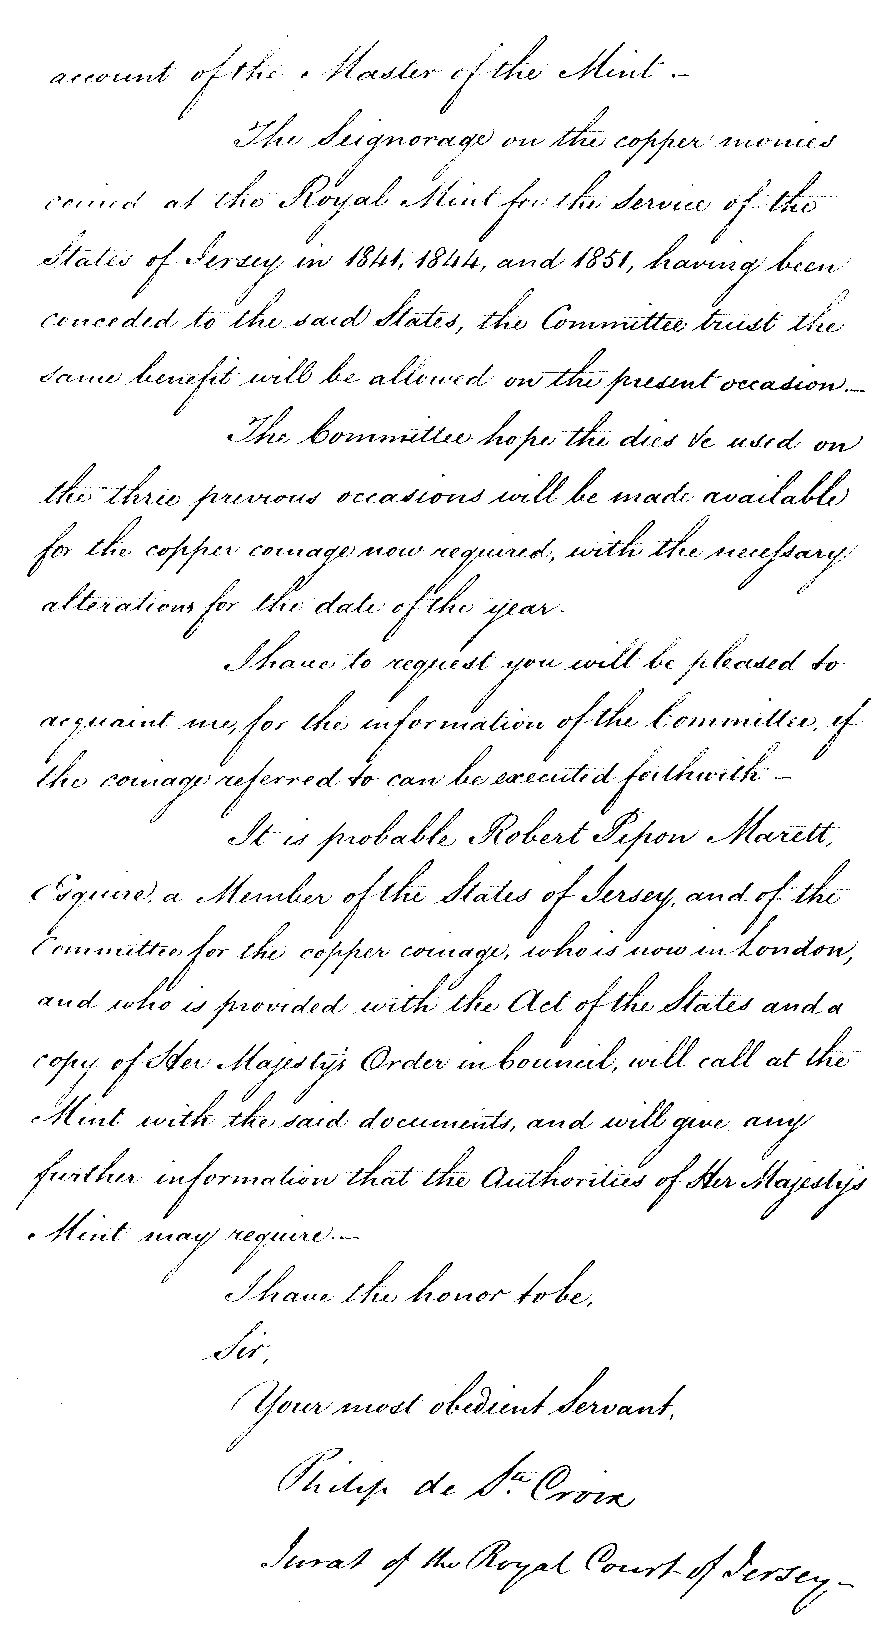 account of the Master of the Mint.—
The Seignorage on the copper monies
coined at the Royal Mint for the Service of the
States of Jersey in 1841, 1844, and 1851, having been
conceded to the said States, the Committee trust the
same benefit will be allowed on the present occasion.—
The Committee hope the dies &c used on
the three previous occasions will be made available
for the copper coinage now required, with the necessary
alterations for the date of the year.
I have to request you will be pleased to
acquaint me, for the information of the Committee, if
the coinage referred to can be executed forthwith—
It is probable Robert Pipon Marett,
Esquire, a Member of the States of Jersey, and of the
Committee for the copper coinage, who is now in London,
and who is provided with the Act of the States and a
copy of Her Majesty's Order in Council, will call at the
Mint with the said documents, and will give any
further information that the Authorities of Her Majesty's
Mint may require.—
I have the honor to be,
Sir,
Your most obedient Servant,
Philip de Ste. Croix
Jurat of the Royal Court of Jersey—